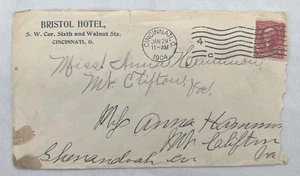 BRISTOL HOTEL,
S. W. Cor. Sixth and Walnut Sts.
CINCINNATI, O.
CINCINNATI, O.
JAN 29
11-AM
1904
4
Miss Anna Hammon,
Mt. Clifton,
Va.
Miss Anna Hammon
Mt Clifton
Shenandoah Co
Va